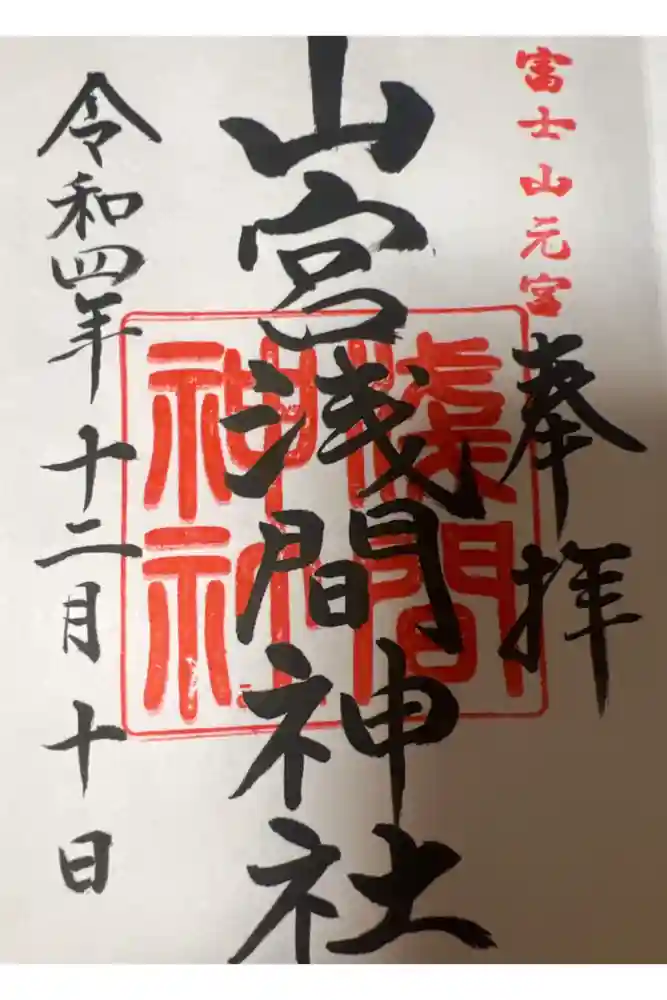 富士山元宮
奉拝
山宮浅間神社
淺間
神社
令和四年十二月十日